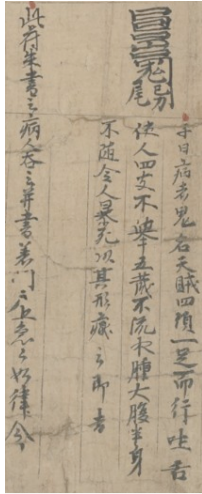 子日病者鬼名天賊四頭一足而行吐舌
使人四支不舉五藏不流水腫大腹半身
不隨令人暴死以其形厭之即吉
此符朱書之病人吞之并書著門上急々如律令